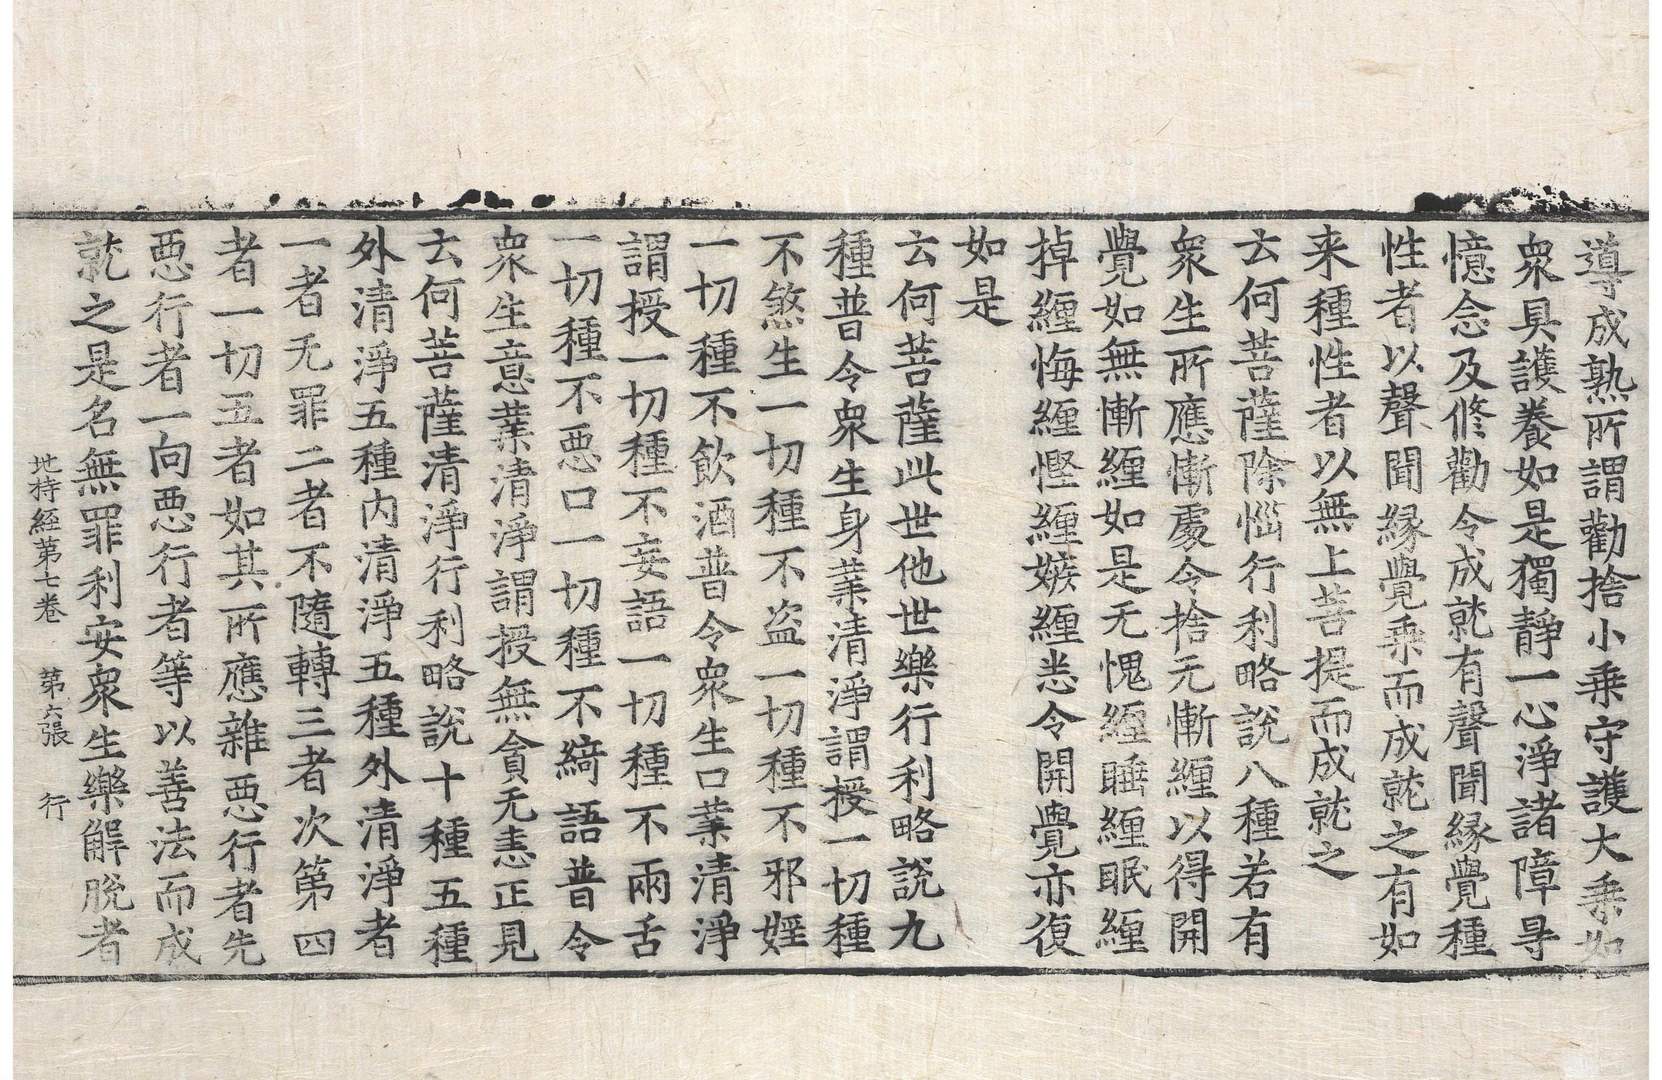 導成熟所謂勸捨小乗守護大乗如
衆具護養如是獨靜一心淨諸障㝵
憶念及修勸令成就有聲聞縁覺種
性者以聲聞縁覺乗而成就之有如
来種性者以無上菩提而成就之
云何菩薩除惱行利略說八種若有
衆生所應慚處令捨无慚纏以得開
覺如無慚纏如是无愧纏睡纏眠纏
掉纏悔纏慳纏嫉纏悉令開覺亦復
如是
云何菩薩此世他世樂行利略說九
種普令衆生身業清淨謂授一切種
不煞生一切種不盗一切種不邪婬
一切種不飲酒普令衆生口業清淨
謂授一切種不妄語一切種不兩舌
一切種不惡口一切種不綺語普令
衆生意業清淨謂授無貪无恚正見
云何菩薩清淨行利略說十種五種
外清淨五種内清淨五種外清淨者
一者无罪二者不隨轉三者次第四
者一切五者如其所應雜惡行者先
惡行者一向惡行者等以善法而成
就之是名無罪利安衆生樂解脫者
地持經第七卷 第六張 行